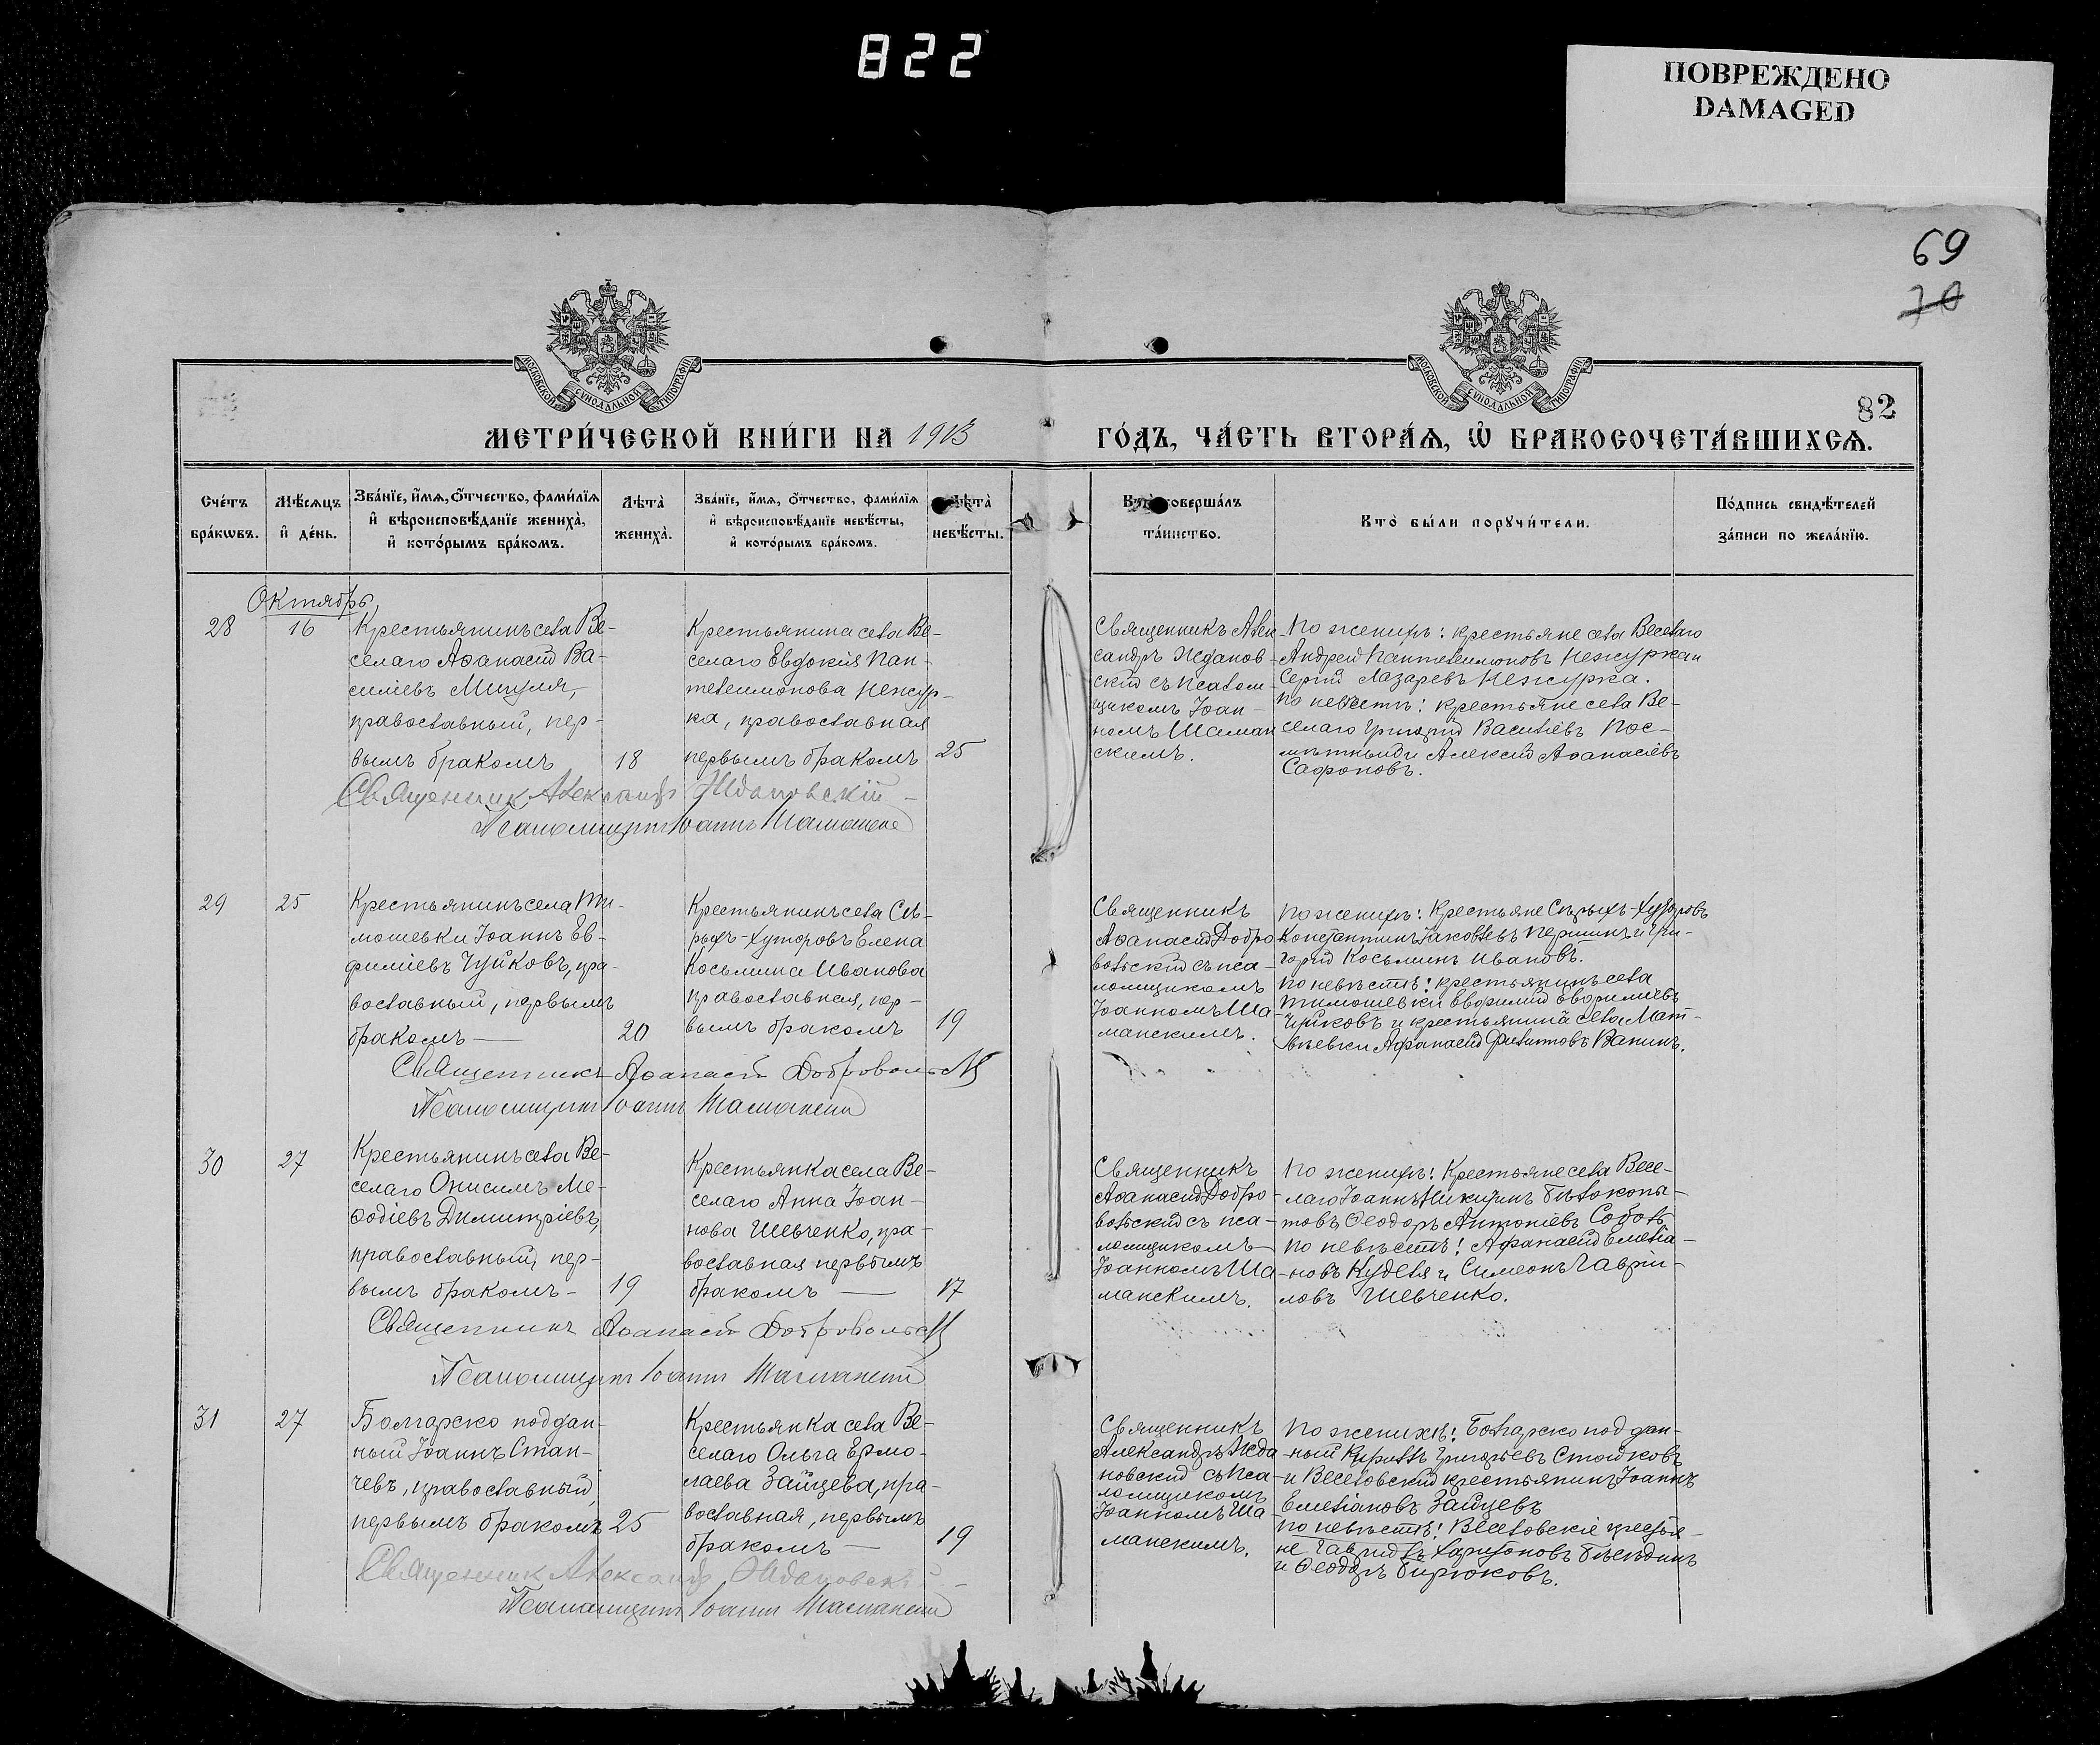 822
ПОВРЕЖДЕНО
DAMAGED
69
70
МОСКОВСКОЙ СѴНОДАЛЬНОЙ ТИПОГРАФІИ
МОСКОВСКОЙ СѴНОДАЛЬНОЙ ТИПОГРАФІИ
82
МЕТРИ́ЧЕСКОЙ КНИ́ГИ НА 1913
ГО́ДЪ, ЧА́СТЬ ВТОРА́Ѧ, Ѽ БРАКОСОЧЕТА́ВШИХСѦ.
Сче́тъ
бра́кѡвъ.
Мѣ́сѧцъ
и҆ де́нь.
Зва́нїе, и҆́мѧ, ѻ҆́тчество, фами́лїѧ
и҆ вѣроисповѣ́данїе жениха̀,
и҆ кото́рымъ бра́комъ.
Лѣ́та̀
жениха̀.
Зва́нїе, и҆́мѧ, ѻ҆́тчество, фами́лїѧ
и҆ вѣроисповѣ́данїе невѣ́сты,
и҆ кото́рымъ бра́комъ.
Лѣ́та̀
невѣ́сты.
Кто̀ соверша́лъ
та́инство.
Кто̀ бы́ли порꙋчи́тели.
По́дпись свидѣ́телей
за́писи по жела́нїю.
Октябрь
28
16
Крестьянинъ села Ве-
селаго Аѳанасій Ва-
силіевъ Мигуля,
православный, пер-
вымъ бракомъ
18
Крестьянина села Ве-
селаго Евдокія Пан-
телеимонова Ненжур-
ка, православная
первымъ бракомъ
25
Священникъ Алек-
сандръ Ждановскій
съ псалом-
щикомъ Іоан-
номъ Шаман
скимъ.
По женихѣ: крестьяне села Веселаго
Андрей Пантелеимоновъ
Сергій Лазаревъ Ненжурка.
По невѣстѣ: крестьяне села Ве-
селаго Григорій Васильевъ Пос-
мѣтный и Алексій Аѳанасіевъ
Сафоновъ.
Священникъ Александръ Ждановскій
Псаломщикъ Іоаннъ Шаманскій
29
25
Крестьянинъ села Ти-
мошевки Іоаннъ Ев-
фиміевъ Чуйковъ, пра-
вославный, первымъ
бракомъ
20
Крестьянинъ села Сѣ-
рыхъ-Хуторовъ Елена
Косьмина Иванова
православная, пер-
вымъ бракомъ
19
Священникъ
Аѳанасій Добро
вольскій съ пса-
ломщикомъ
Іоанномъ Ша-
манскимъ.
По женихѣ: Крестьяне Сѣрыхъ-Хуторовъ
Константинъ Іаковлевъ Першинъ и Гри-
горій Косьминъ Ивановъ.
По невѣстѣ: крестьянинъ села
Тимошевки Евфимій Евфиміевъ
Чуйковъ и крестьянина села Мат-
вѣевки Афанасій Филиповъ Ванинъ.
Священникъ Аѳанасій Добровольскій
Псаломщикъ Іоаннъ Шаманскій
30
27
Крестьянинъ села Ве-
селаго Онисимъ Ме-
ѳодіевъ Димитріевъ,
православный, пер-
вымъ бракомъ-
19
Крестьянка села Ве-
селаго Анна Іоан-
нова Шевченко, пра-
вославная первымъ
бракомъ
17
Священникъ
Аѳанасій Добро-
вольскій съ пса-
ломщикомъ
Іоанномъ Ша-
манскимъ.
По женихѣ: Крестьяне села Весе-
лаго Іоаннъ Никитинъ Бѣлокопы-
товъ Ѳеодоръ Антоніевъ Соболь
По невѣстѣ: Афанасій Емеліа-
новъ Куделя и Симеонъ Гаврій-
ловъ Шевченко.
Священникъ Аѳанасій Добровольскій
Псаломщикъ Іоаннъ Шаманскій
31
27
Болгарско поддан-
ный Іоаннъ Стан-
чевъ, православный,
первымъ бракомъ
25
Крестьянка села Ве-
селаго Ольга Ермо-
лаева Зайцева, пра-
вославная, первымъ
бракомъ
19
Священникъ
Александръ Жда-
новскій съ пса-
ломщикомъ
Іоанномъ Ша-
манскимъ.
По женихѣ: Болгарско поддан-
ный Кириллъ Григорьевъ Стойковъ
и Веселовскій крестьянинъ Іоаннъ
Емеліановъ Зайцевъ
По невѣстѣ: Веселовскіе крестья-
не Гавріилъ Харитоновъ
и Ѳеодоръ Бирюковъ.
Священникъ Александръ Ждановскій
Псаломщикъ Іоаннъ Шаманскій